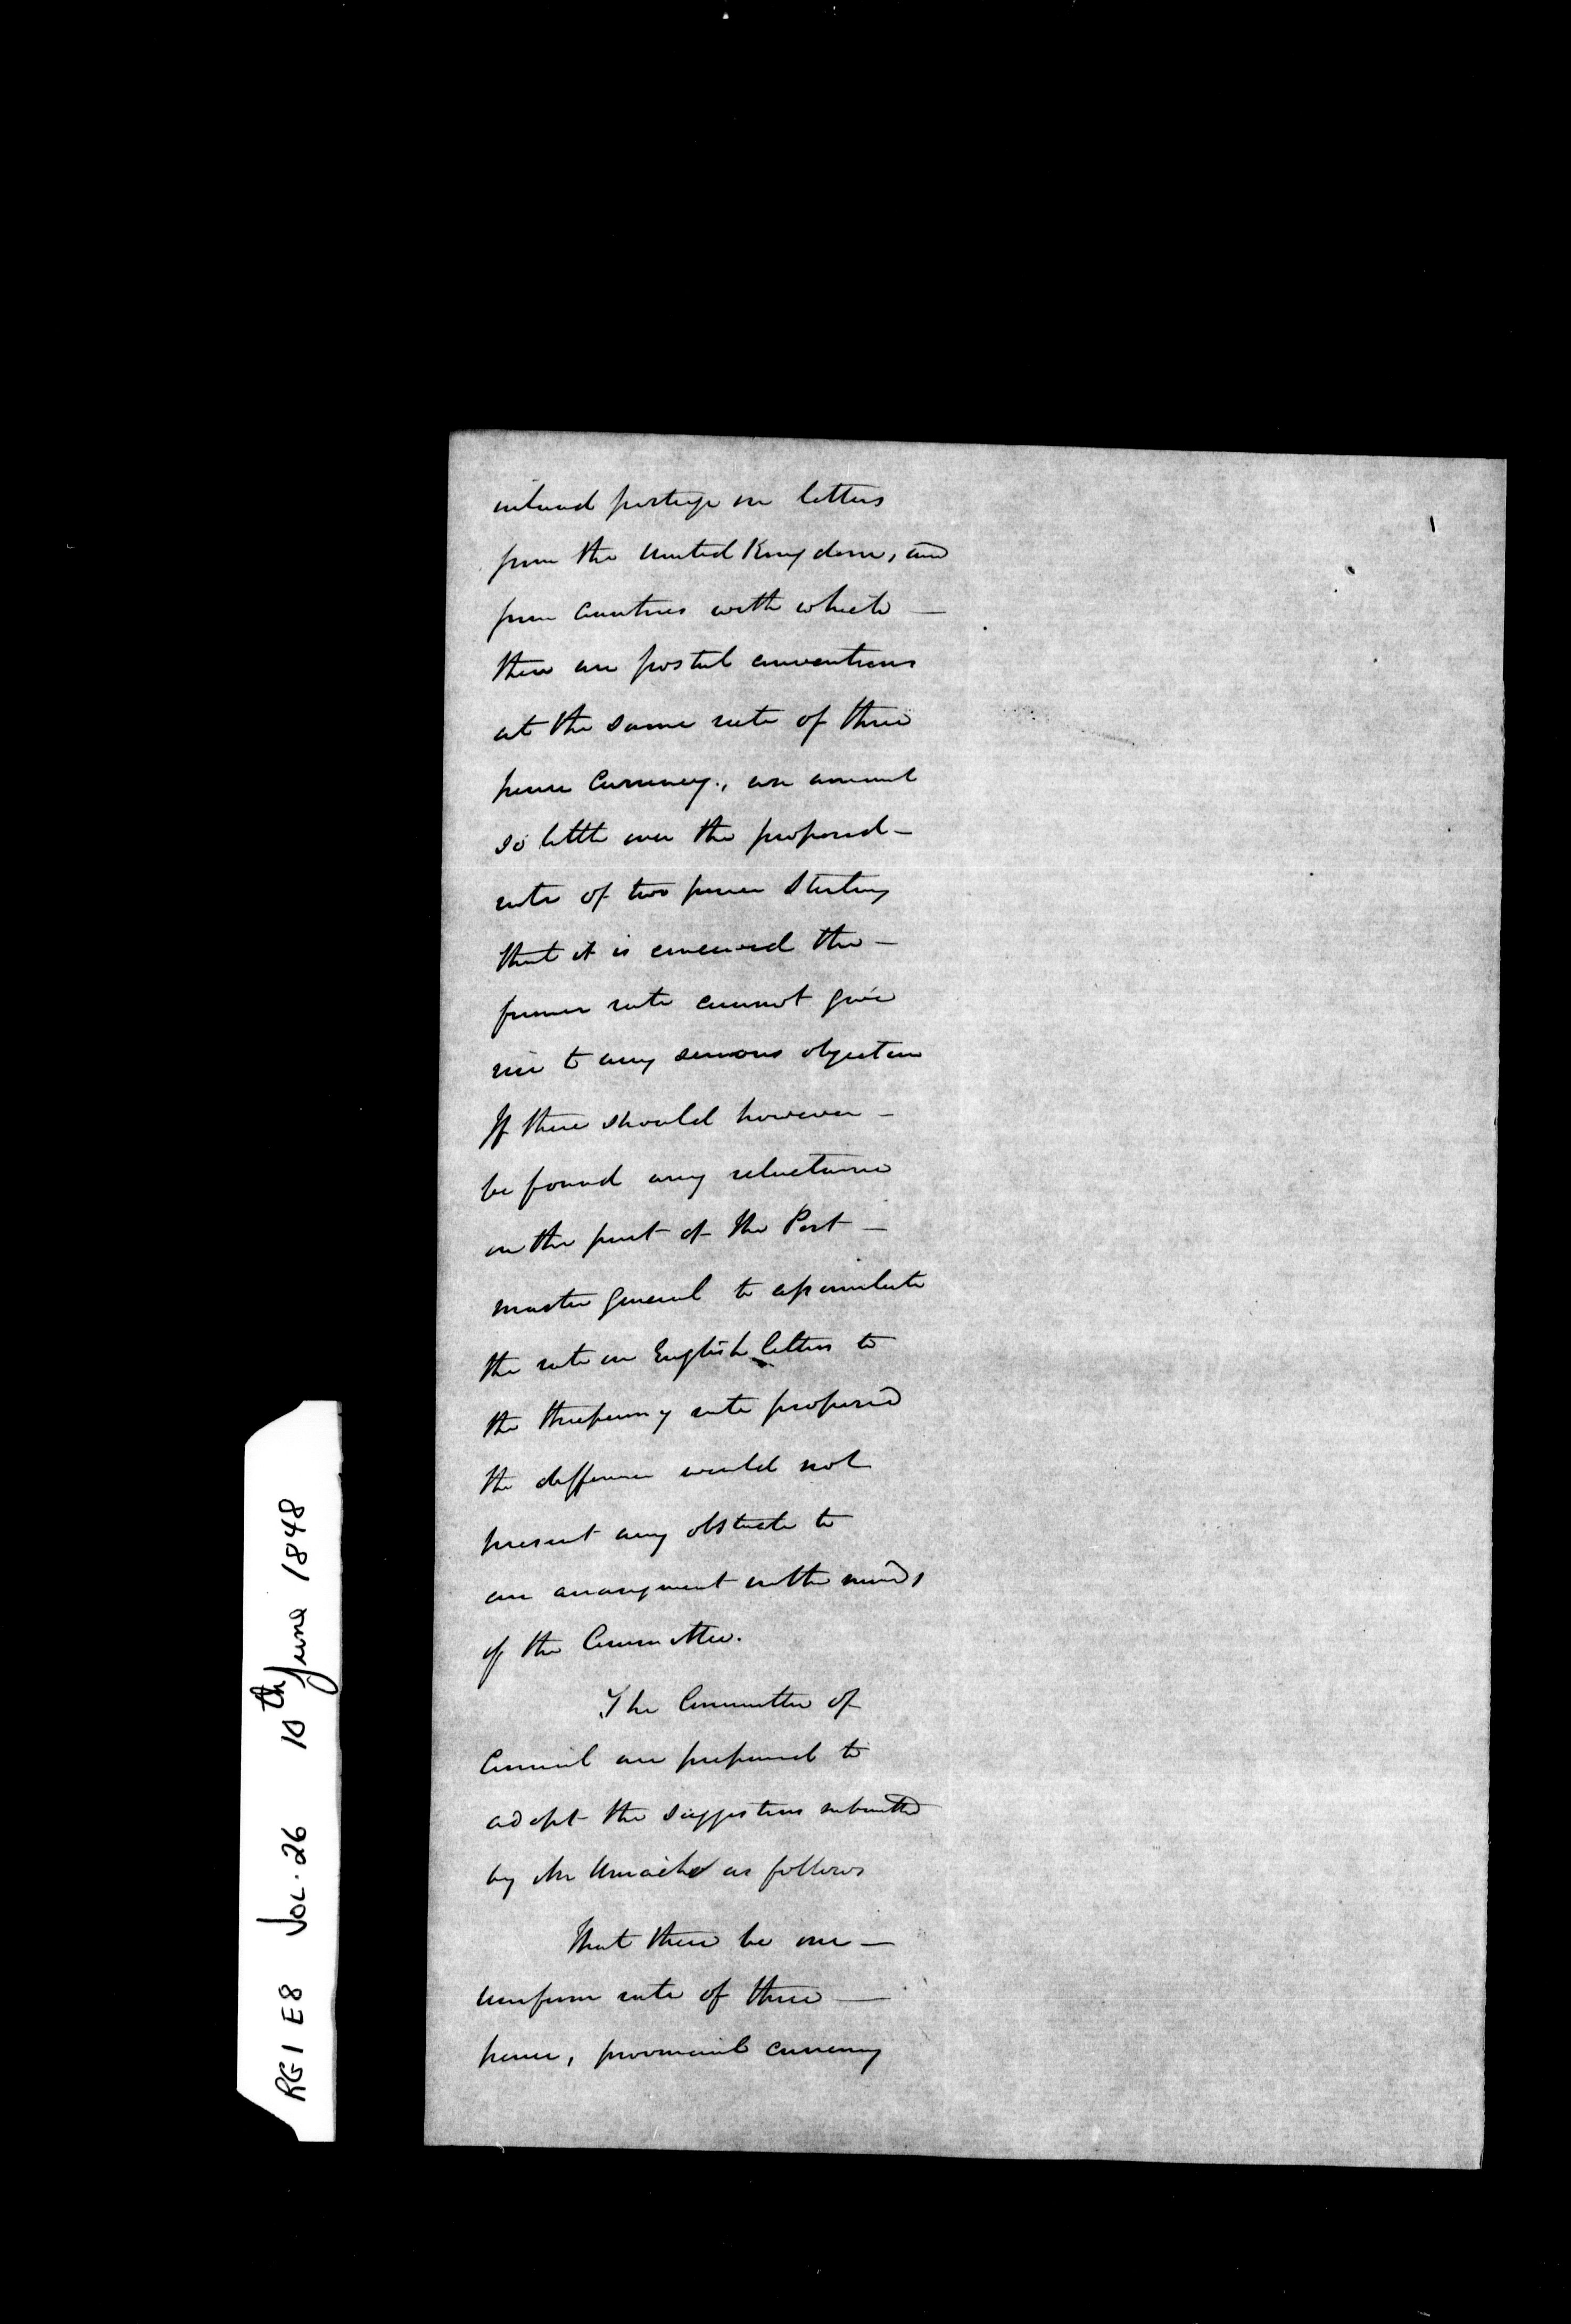 inland postage on letters
from the United Kingdom, and
from Countries with which —
there are postal conventions
at the same rate of three
pence Currency., an amount
so little over the proposed —
rate of two pence Sterling
that it is conceived the —
former rate cannot give
rise to any serious objection
If there should however —
be found any reluctance
on the part of the Post —
master General to assimilate
the rate on English letters to
the threepenny rate proposed
the difference would not
present any obstacle to
an arrangement in the minds
of the Committee.
The Committee of
Council are prepared to
adopt the suggestions submitted
by Mr as follows
That there be one —
uniform rate of three —
pence, provincial currency
RG1 E8 VOL. 26 10th June 1848